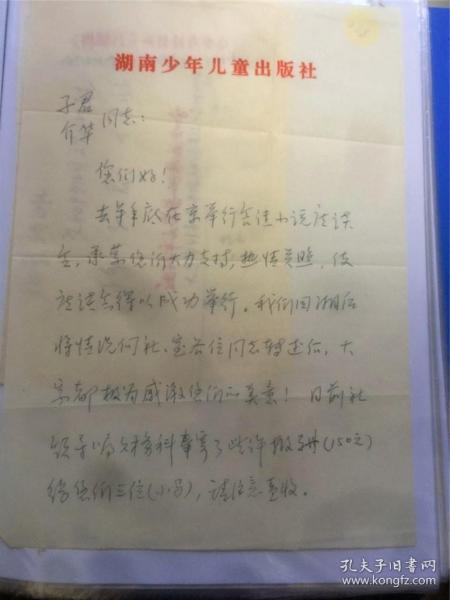 湖南少年儿童出版社
子君
介华 同志:
您们好!
去年年底在京举行会法小说座谈
会,承蒙您们大力支持,热情关照,使
座谈会得以成功举行。我们回湘后
将情况向社、室各位同志转述后,大
家都极为感谢您们的美意!日前社
领导嘱财务科奉寄了些许报酬(150元)
给您们三位(小马),请注意查收。
孔夫子旧书网
www.kongfz.com